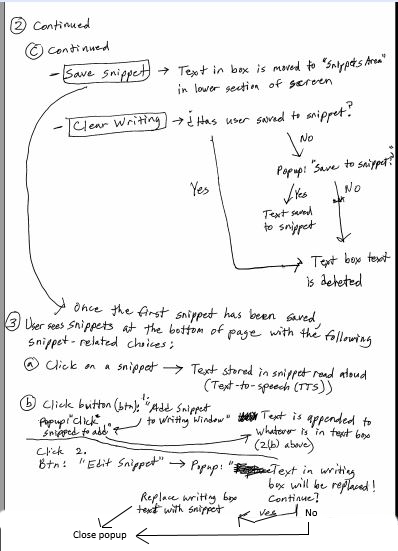 ② Continued
Ⓒ Continued
- Save snippet → Text in box is moved to "Snippets Area"
in lower section of screen
- Clear Writing → ¿Has user saved to snippet?
No
Popup: "Save to snippet?"
Yes
Yes
No
Text saved
to snippet
Text box text
is deleted
Once the first snippet has been saved,
③ User sees snippets at the bottom of page with the following
snippet-related choices:
ⓐ Click on a snippet → Text stored in snippet read aloud
(Text-to-speech (TTS))
ⓑ Click button (btn): 1. "Add Snippet
to Writing Window"
Text is appended to
Popup: "Click
snipped to add"
whatever is in text box
(2(b) above)
Click 2.
Btn: "Edit Snippet" → Popup: "Text in writing
box will be replaced!
Continue?
Replace writing box
text with snippet
yes
No
Close popup